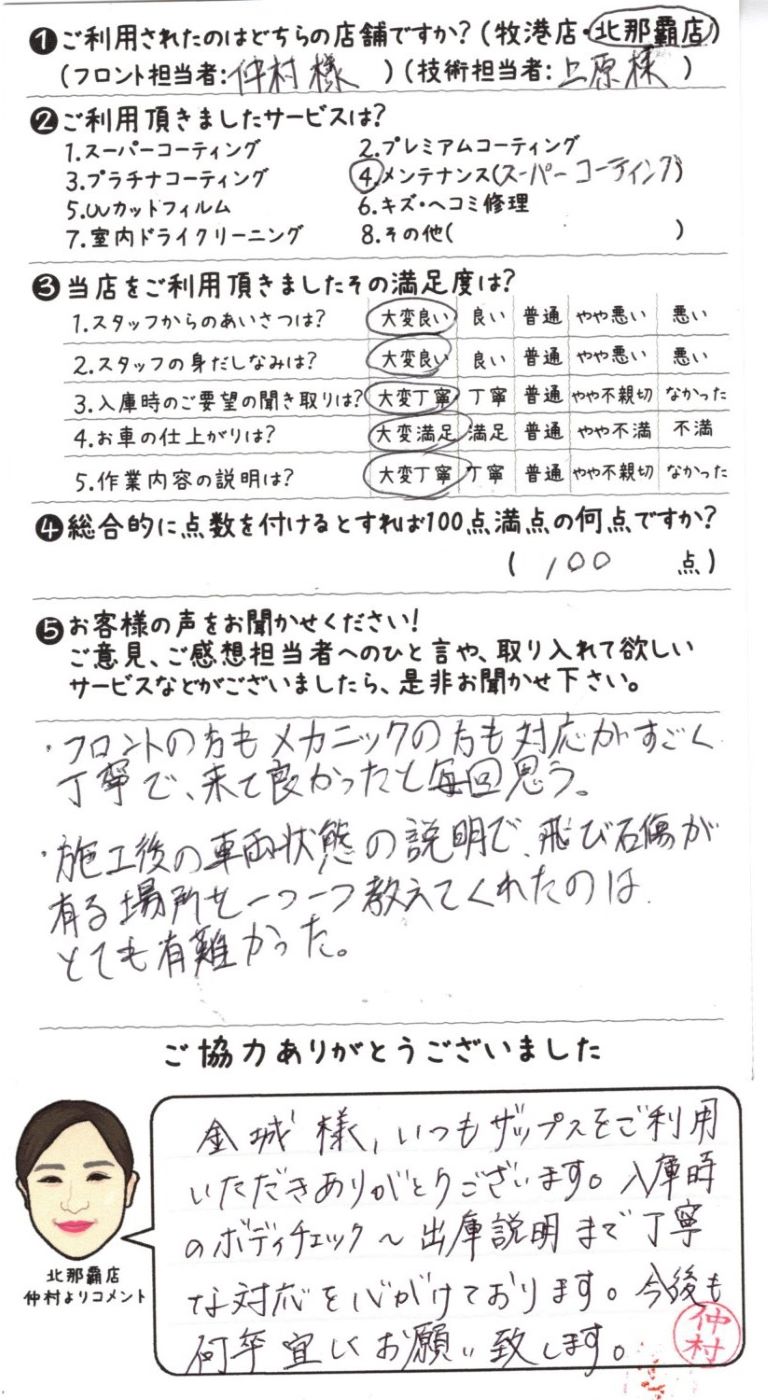 ❶ご利用されたのはどちらの店舗ですか?(牧港店・北那覇店)
(フロント担当者:仲村様 )(技術担当者:上原様 )
❷ご利用頂きましたサービスは?
1.スーパーコーティング 2.プレミアムコーティング
3.プラチナコーティング 4.メンテナンス(スーパーコーティング)
5.UVカットフィルム 6.キズ・ヘコミ修理
7.室内ドライクリーニング 8.その他( )
❸当店をご利用頂きましたその満足度は?
1.スタッフからのあいさつは? 大変良い 良い 普通 やや悪い 悪い
2.スタッフの身だしなみは? 大変良い 良い 普通 やや悪い 悪い
3.入庫時のご要望の聞き取りは? 大変丁寧 丁寧 普通 やや不親切 なかった
4.お車の仕上がりは? 大変満足 満足 普通 やや不満 不満
5.作業内容の説明は? 大変丁寧 丁寧 普通 やや不親切 なかった
❹総合的に点数を付けるとすれば100点満点の何点ですか?
( 100 点)
❺お客様の声をお聞かせください!
ご意見、ご感想担当者へのひと言や、取り入れて欲しい
サービスなどがございましたら、是非お聞かせ下さい。
・フロントの方もメカニックの方も対応がすごく
丁寧で、来て良かったと毎回思う。
・施工後の車両状態の説明で、飛び石傷が
有る場所を一つ一つ教えてくれたのは
とても有難かった。
ご協力ありがとうございました
金城様、いつもザップスをご利用
いただきありがとうございます。入庫時
のボディチェック〜出庫説明まで丁寧
な対応を心がけております。今後も
何卒宜しくお願い致します。
仲村
北那覇店
仲村よりコメント